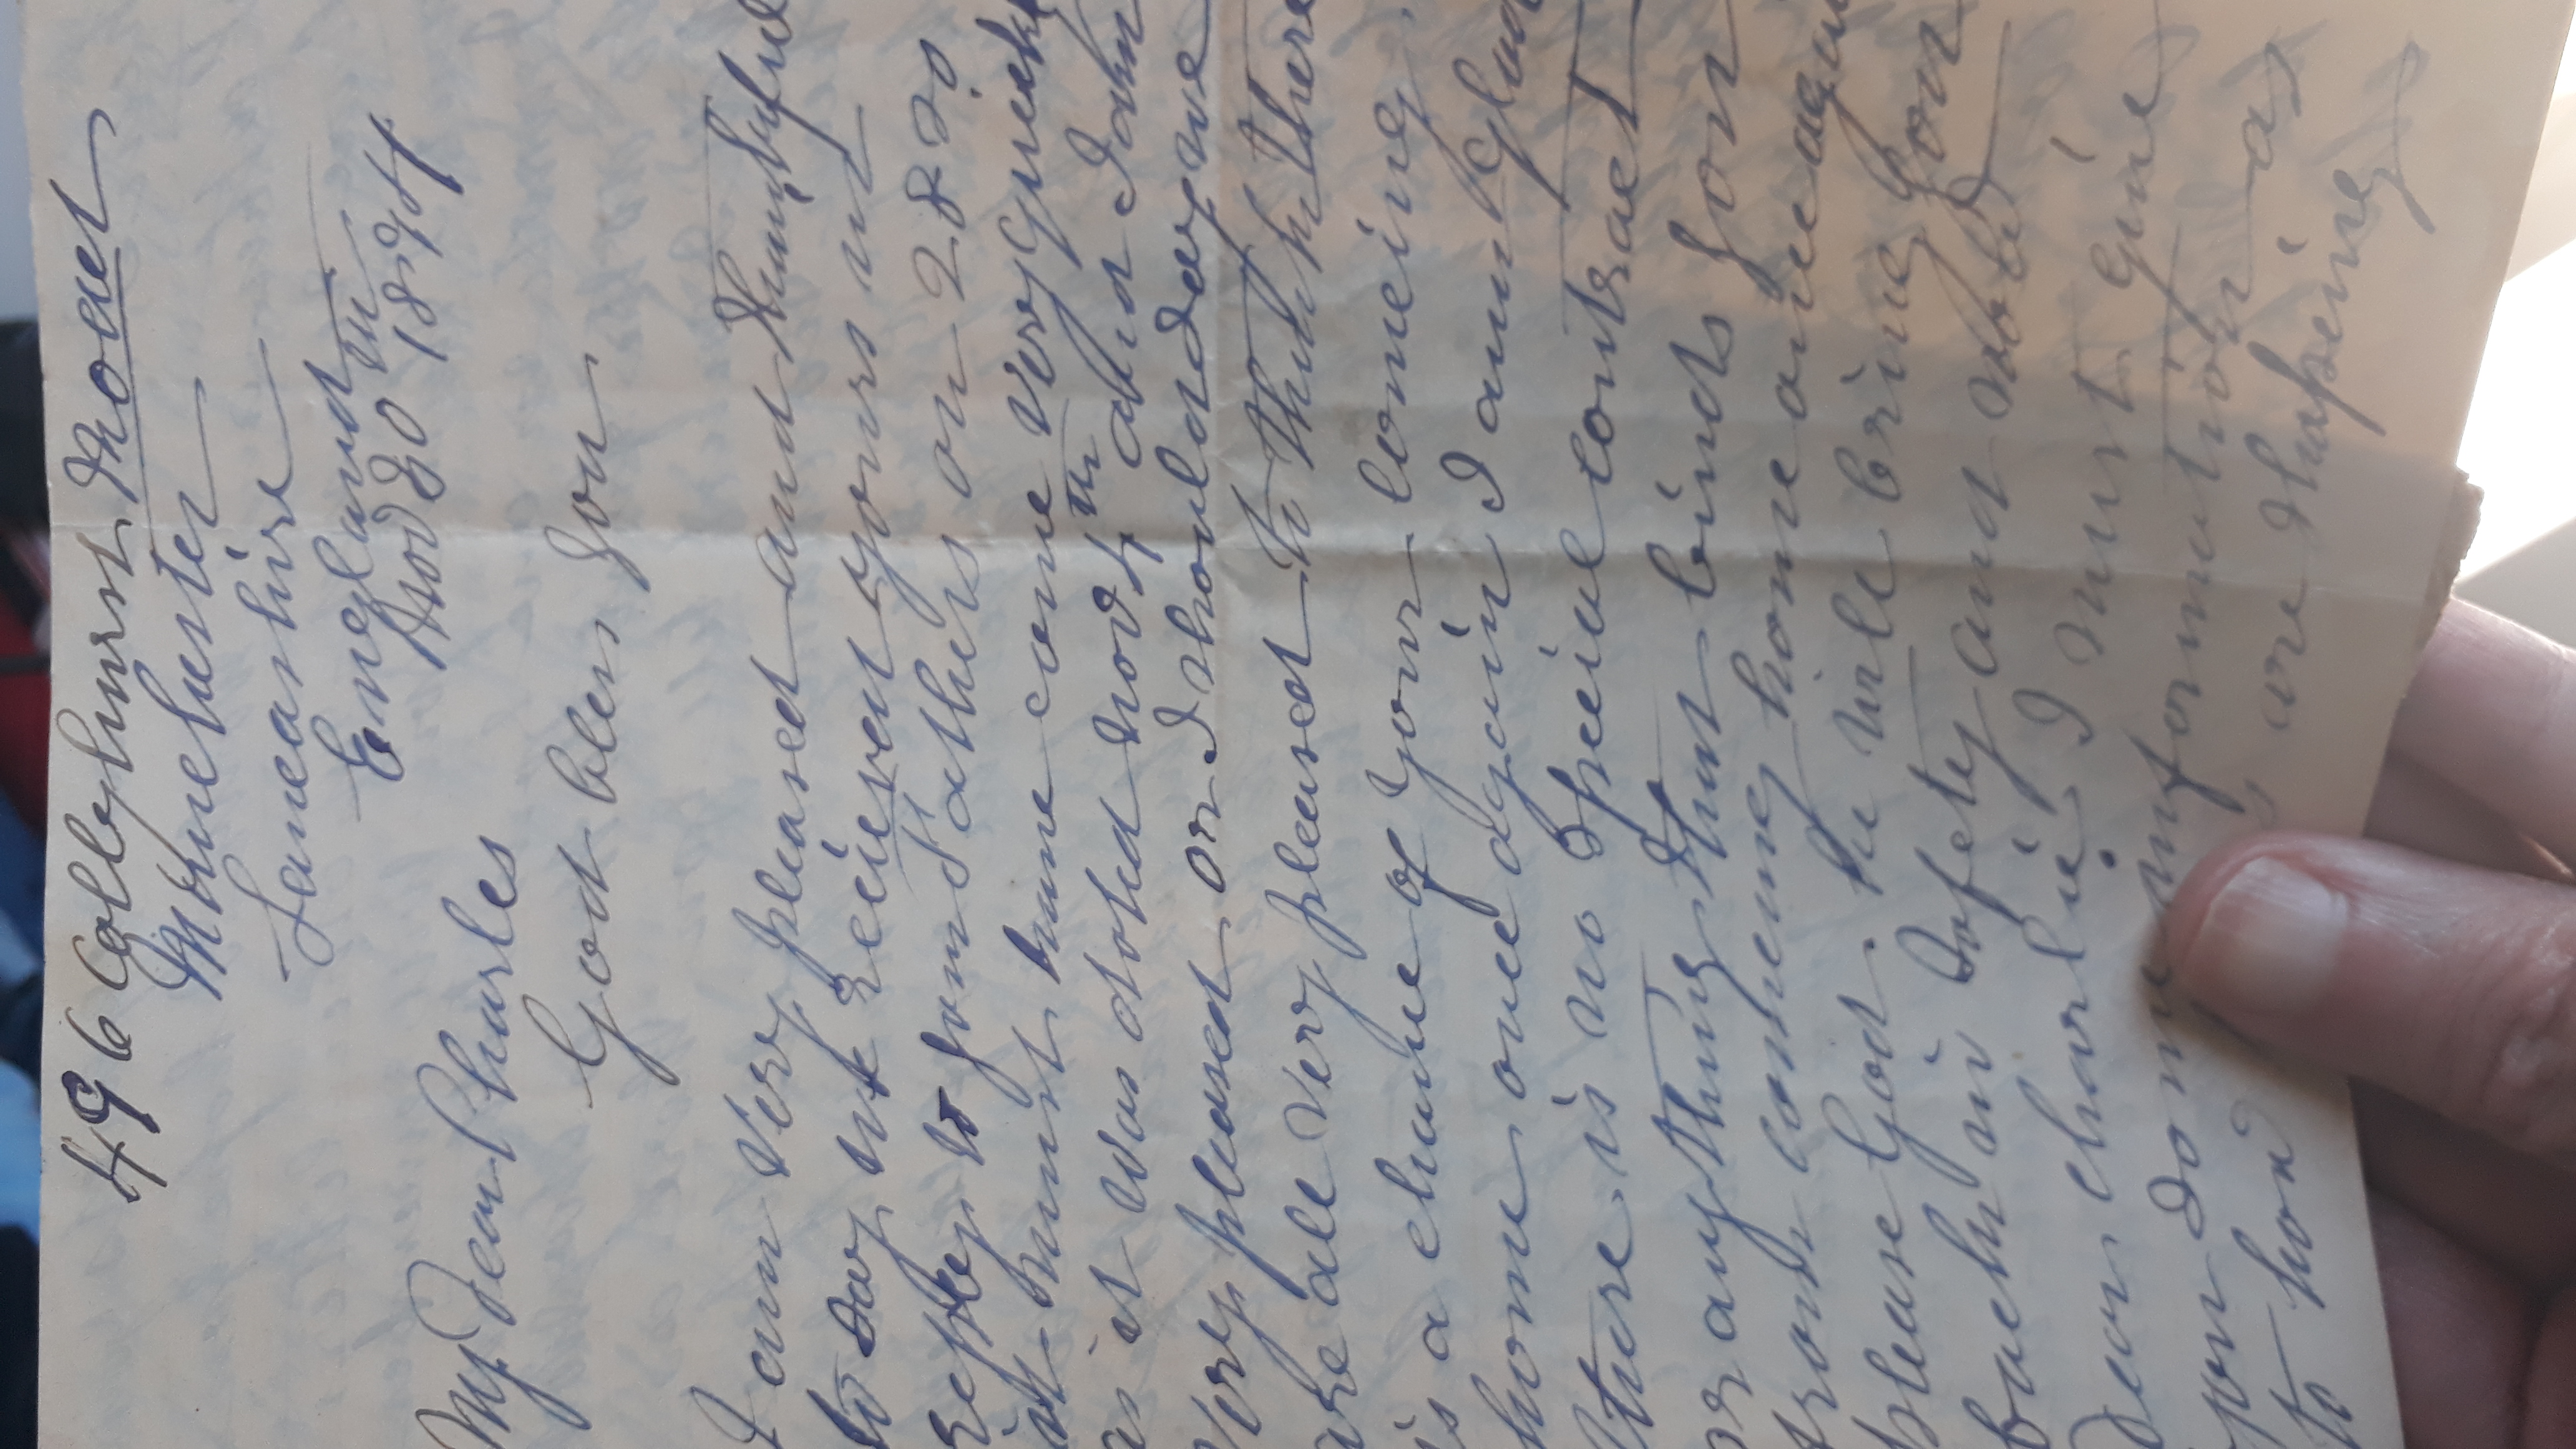 496 Collyhurst Road
Manchester
Lancashire
England
Nov 30th 1894
My Dear Charles
God bless you
I am very pleased and thankful
to say we recieved yours in
reply to your Fathers on 28
it must have come very quick
as it was dated Nov 4th and I am
very pleased or I should say we
are all very pleased to think there
is a chance of your comeing
home once again I am glad
there is no special contract
or anything that binds you
from comeing home once again
please God. he will bring you
back in safety and now
Dear Charlie I must give
you some information as
to how are shapeing